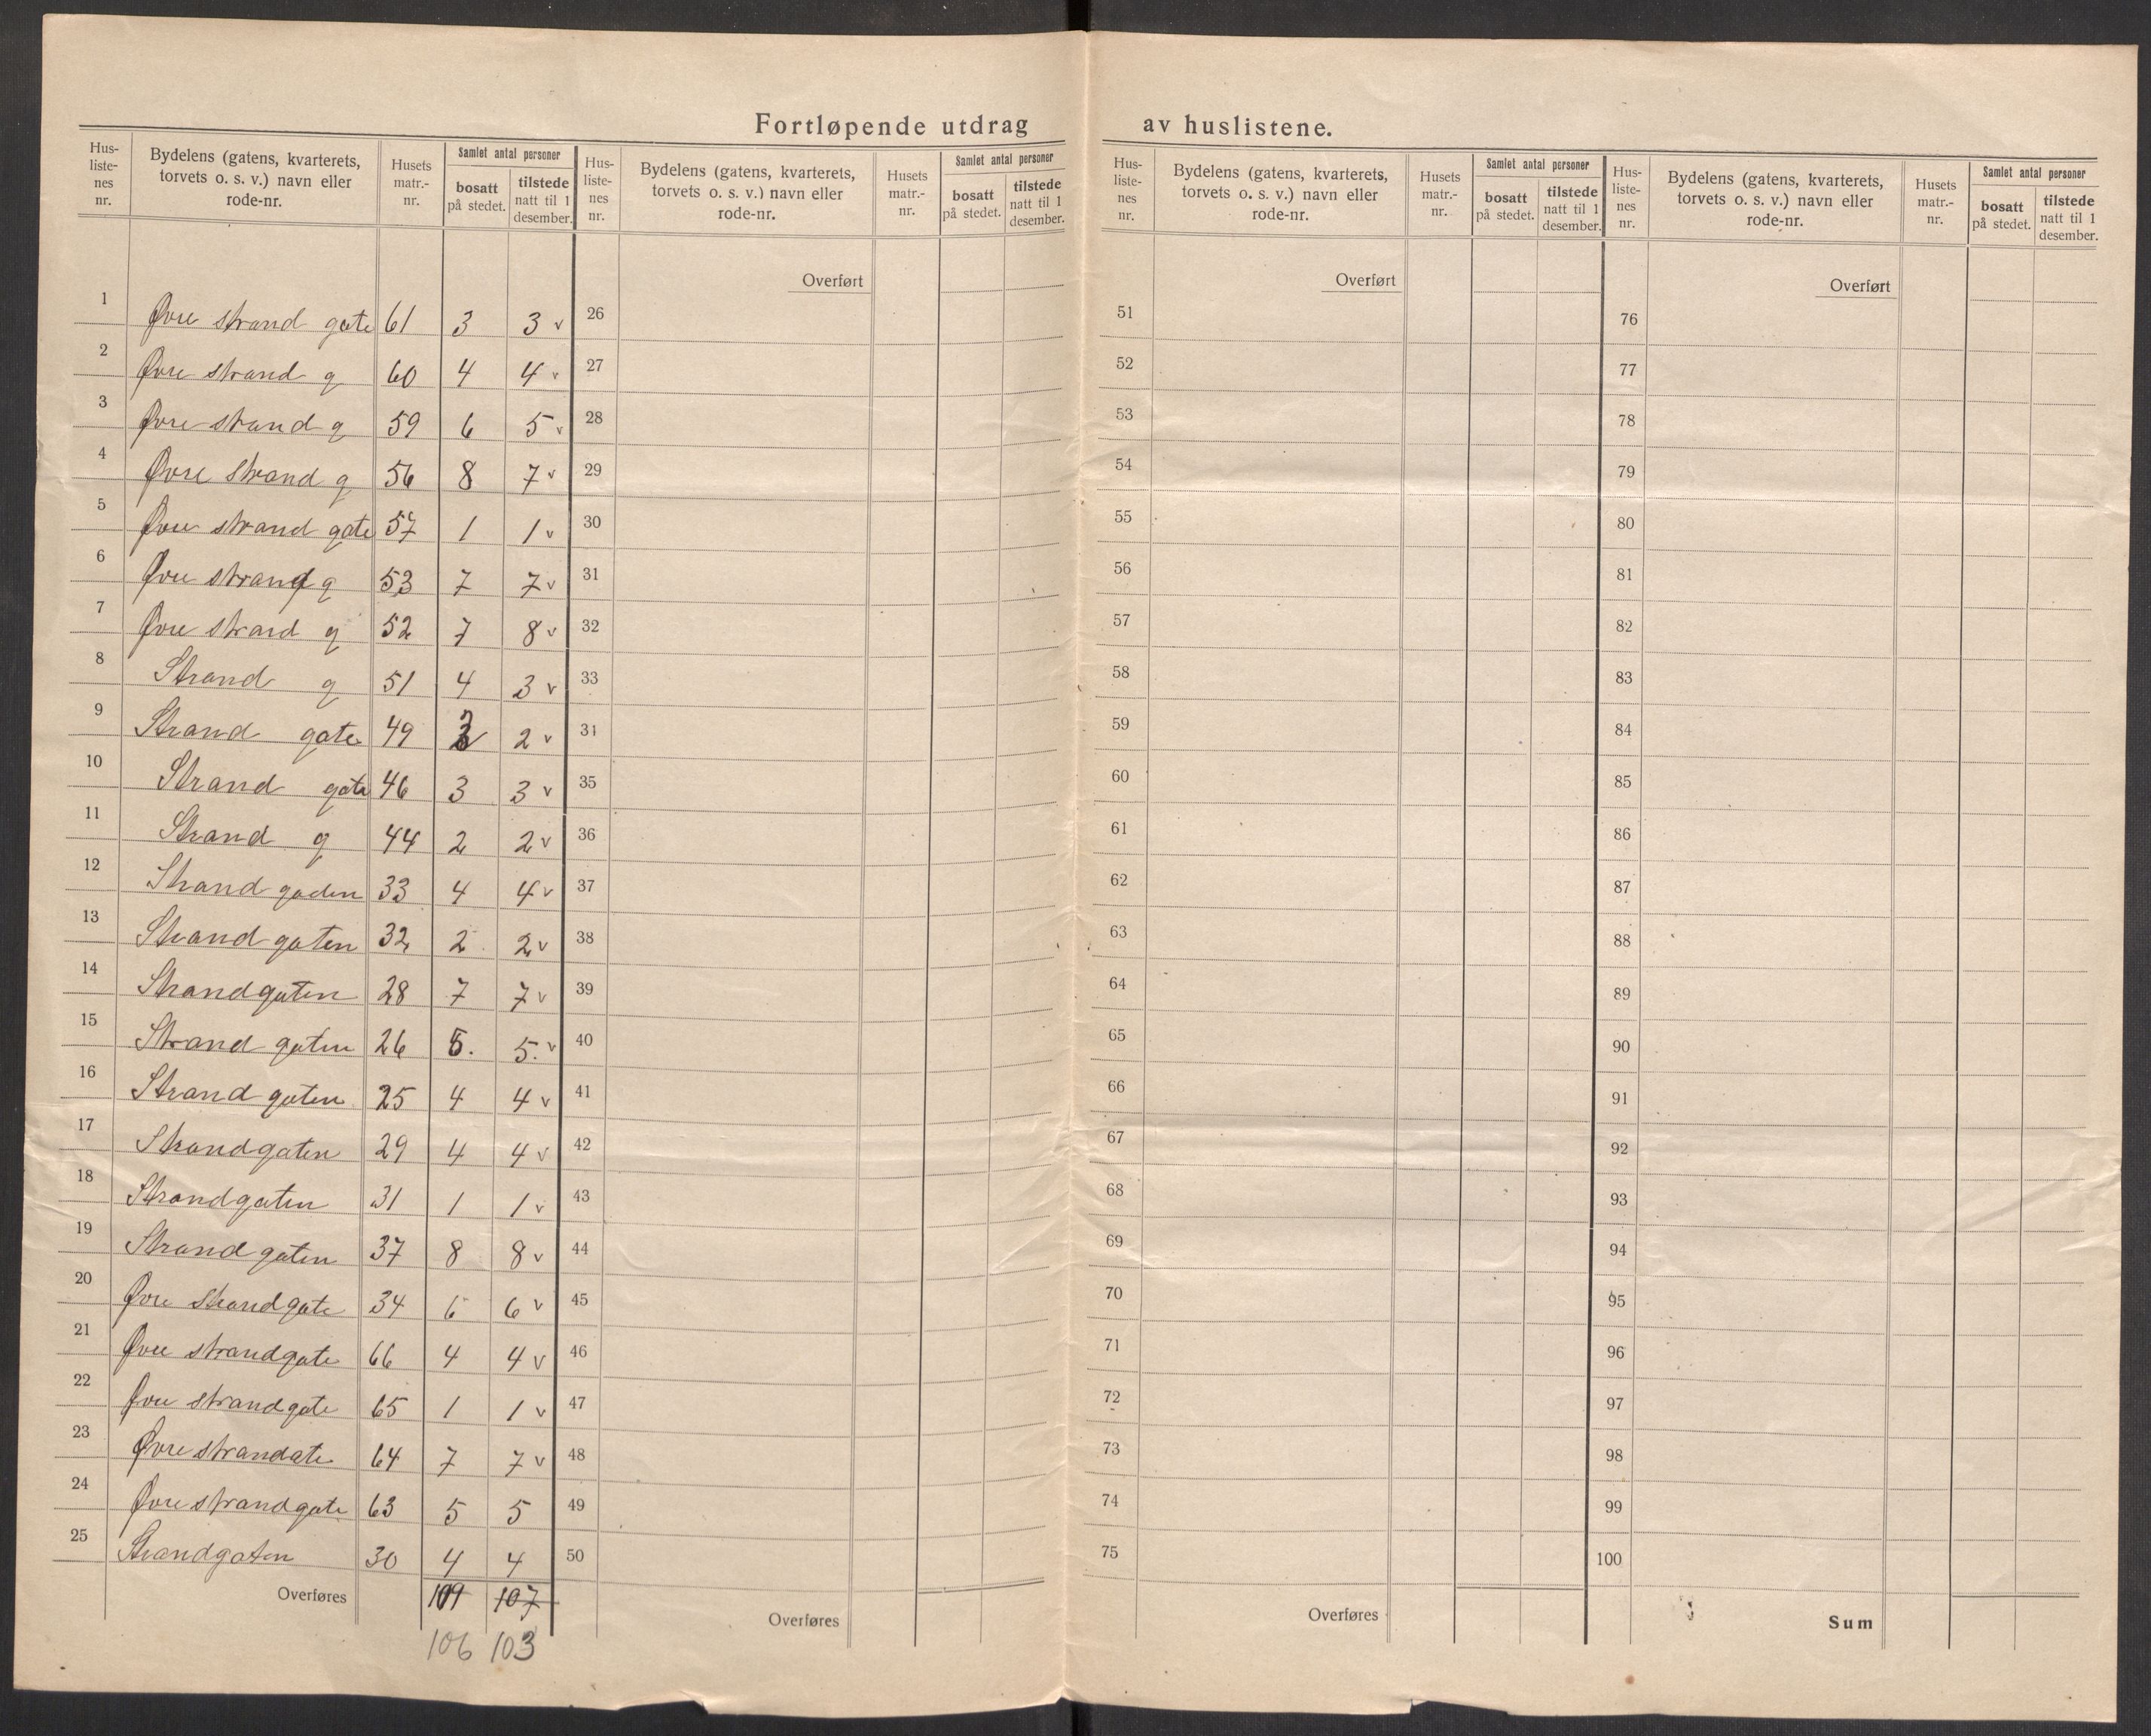 Fortløpende utdrag av huslistene.
Hus-listenes nr. Bydelens (gatens, kvarterets, torvets o. s. v.) navn eller rode-nr. Husets matr.-nr. Samlet antal personer bosatt på stedet. tilstede natt til 1 desember.
Hus-listenes nr. Bydelens (gatens, kvarterets, torvets o. s. v.) navn eller rode-nr. Husets matr.-nr. Samlet antal personer bosatt på stedet. tilstede natt til 1 desember.
Hus-listenes nr. Bydelens (gatens, kvarterets, torvets o. s. v.) navn eller rode-nr. Husets matr.-nr. Samlet antal personer bosatt på stedet. tilstede natt til 1 desember.
Hus-listenes nr. Bydelens (gatens, kvarterets, torvets o. s. v.) navn eller rode-nr. Husets matr.-nr. Samlet antal personer bosatt på stedet. tilstede natt til 1 desember.
1 Øvre strand gate 61 3 3 v
2 Øvre strand g 60 4 4 v
3 Øvre strand g 59 6 5 v
4 Øvre strand g 56 8 7 v
5 Øvre strand gate 57 1 1 v
6 Øvre strand g 53 7 7 v
7 Øvre strand g 52 7 8 v
8 Strand g 51 4 3 v
9 Strand gate 49 2 v
10 Strand gate 46 3 3 v
11 Strand g 44 2 2 v
12 Strand gaden 33 4 4 v
13 Strand gaten 32 2 2 v
14 Strandgaten 28 7 7 v
15 Strand gaten 26 5. 5. v
16 Strand gaten 25 4 4 v
17 Strandgaten 29 4 4 v
18 Strandgaten 31 1 1 v
19 Strandgaten 37 8 8 v
20 Øvre Strandgate 34 6 6 v
21 Øvre strandgate 66 4 4 v
22 Øvre strandgate 65 1 1 v
23 Øvre strandate 64 7 7 v
24 Øvre strandgate 63 5 5
25 Strandgaten 30 4 4
Overføres 109 107
106 103
Overført
26
27
28
29
30
31
32
33
34
35
36
37
38
39
40
41
42
43
44
45
46
47
48
49
50
Overføres
Overført
51
52
53
54
55
56
57
58
59
60
61
62
63
64
65
66
67
68
69
70
71
72
73
74
75
Overføres
Overført
76
77
78
79
80
81
82
83
84
85
86
87
88
89
90
91
92
93
94
95
96
97
98
99
100
Sum